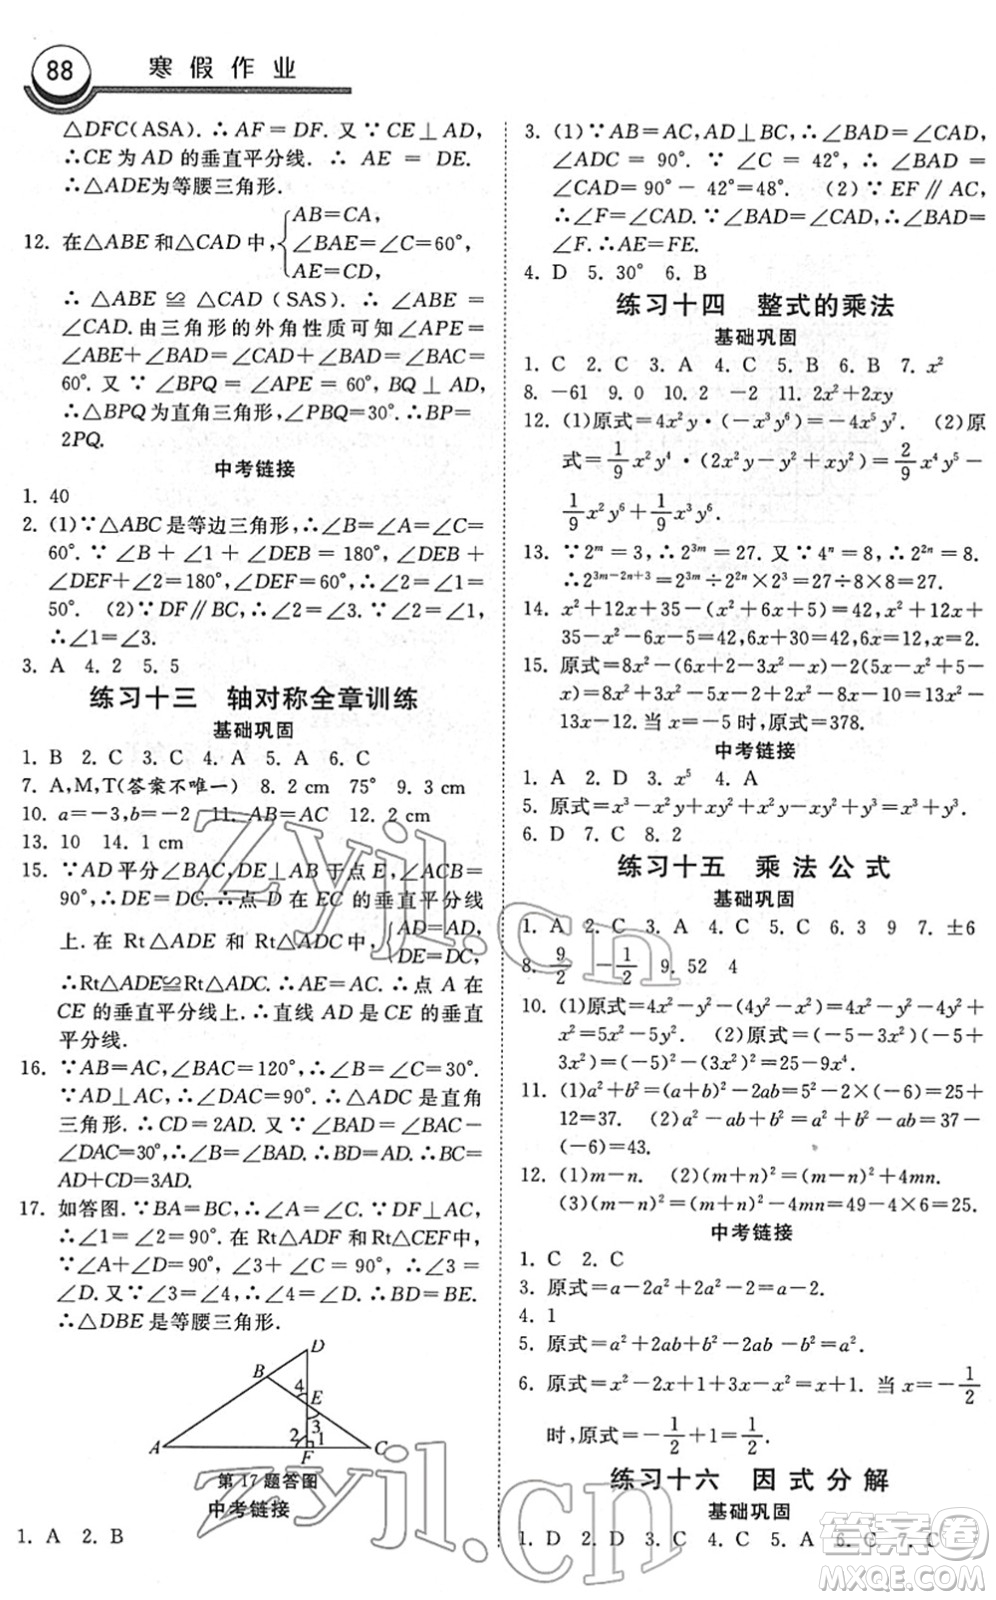 88 寒假作业
△DFC(ASA). ∴AF=DF. 又∵CE⊥AD,
∴CE为AD的垂直平分线. ∴AE=DE.
∴△ADE为等腰三角形.
12. 在△ABE和△CAD中,{AB=CA,
∠BAE=∠C=60°,
AE=CD.
∴△ABE≌△CAD(SAS). ∴∠ABE=
∠CAD.由三角形的外角性质可知∠APE=
∠ABE+∠BAD=∠CAD+∠BAD=∠BAC=
60°. 又∵∠BPQ=∠APE=60°, BQ⊥AD,
∴△BPQ为直角三角形,∠PBQ=30°. ∴BP=
2PQ.
中考链接
1. 40
2. (1)∵△ABC是等边三角形,∴∠B=∠A=∠C=
60°. ∵∠B+∠1+∠DEB=180°,∠DEB+
∠DEF+∠2=180°,∠DEF=60°,∴∠2=∠1=
50°. (2)∵DF∥BC,∴∠2=∠3. ∵∠2=∠1,
∴∠1=∠3.
3. A 4. 2 5. 5
练习十三 轴对称全章训练
基础巩固
1. B 2. C 3. C 4. A 5. A 6. C
7. A,M,T(答案不唯一) 8. 2 cm 75° 9. 3 cm
10. a=-3,b=-2 11. AB=AC 12. 2 cm
13. 10 14. 1 cm
15. ∵AD平分∠BAC,DE⊥AB于点E,∠C=
90°. ∴DE=DC. ∴点D在EC的垂直平分线
上. 在Rt△ADE和Rt△ADC中,{AD=AD,
DE=DC.
∴Rt△ADE≌Rt△ADC. ∴AE=AC. ∴点A在
CE的垂直平分线上. ∴直线AD是CE的垂直
平分线.
16. ∵AB=AC,∠BAC=120°,∴∠B=∠C=30°.
∵AD⊥AC,∴∠DAC=90°. ∴△ADC是直角
三角形. ∴CD=2AD. 又∵∠BAD=∠BAC-
∠DAC=30°,∴∠B=∠BAD. ∴AD=BD. ∴BC=
AD+CD=3AD.
17. 如答图. ∵BA=BC,∴∠A=∠C. ∵DF⊥AC,
∴∠1=∠2=90°. 在Rt△ADF和Rt△CEF中,
∵∠A+∠D=90°,∠3+∠C=90°,∴∠3=
∠D. 又∵∠3=∠4,∴∠4=∠D. ∴BD=BE.
∴△DBE是等腰三角形.
D
B
4
E
3
2
1
A
F
C
第17题答图
中考链接
1. A 2. B
3. (1)∵AB=AC,AD⊥BC,∴∠BAD=∠CAD,
∠ADC=90°. ∵∠C=42°,∴∠BAD=
∠CAD=90°-42°=48°. (2)∵EF∥AC,
∴∠F=∠CAD. ∵∠BAD=∠CAD,∴∠BAD=
∠F. ∴AE=FE.
4. D 5. 30° 6. B
练习十四 整式的乘法
基础巩固
1. C 2. C 3. A 4. C 5. B 6. B 7. x²
8. -61 9. 0 10. 2 -2 11. 2x²+2xy
12. (1)原式=4x²y·(-x³y⁶)=-4x⁵y⁷. (2)原
式=1/9x²y⁴·(2x²y-y²+xy²)=2/9x⁴y⁵-
1/9x²y⁶+1/9x³y⁶.
13. ∵2ᵐ=3,∴2³ᵐ=27. 又∵4ⁿ=8,∴2²ⁿ=8.
∴2³ᵐ⁻²ⁿ⁺³=2³ᵐ÷2²ⁿ×2³=27÷8×8=27.
14. x²+12x+35-(x²+6x+5)=42,x²+12x+
35-x²-6x-5=42,6x+30=42,6x=12,x=2.
15. 原式=8x²-(x²-5x+6)+x²-5x-6x²+9x-
18=8x²-x²+5x-6+x²-5x-6x²+13x-6=2x²+
13x-12. 当x=-5时,原式=378.
中考链接
1. A 2. D 3. x⁵ 4. A
5. 原式=x³-x²y+xy²+x²y-xy²+y³=x³+y³.
6. D 7. C 8. 2
练习十五 乘法公式
基础巩固
1. A 2. C 3. A 4. C 5. C 6. 3 9 7. ±6
8. 9/2 -1/2 9. 52 4
10. (1)原式=4x²-y²-(4y²-x²)=4x²-y²-4y²+
x²=5x²-5y². (2)原式=(-5-3x²)(-5+
3x²)=(-5)²-(3x²)²=25-9x⁴.
11. (1)a²+b²=(a+b)²-2ab=5²-2×(-6)=25+
12=37. (2)a²-ab+b²=a²+b²-ab=37-
(-6)=43.
12. (1)m-n. (2)(m+n)²=(m-n)²+4mn.
(3)(m-n)²=(m+n)²-4mn=49-4×6=25.
中考链接
1. C 2. C
3. 原式=a-2a²+2(a²-1)=a-2a²+2a²-2=a-2.
4. 1
5. 原式=a²+2ab+b²-2ab-b²=a².
6. 原式=x²-2x+1+3x-x²=x+1. 当x=-1/2
时,原式=-1/2+1=1/2.
练习十六 因式分解
基础巩固
1. D 2. D 3. C 4. C 5. A 6. C 7. C
zyjl.cn
zyjl.cn
答案卷
MXQE.COM